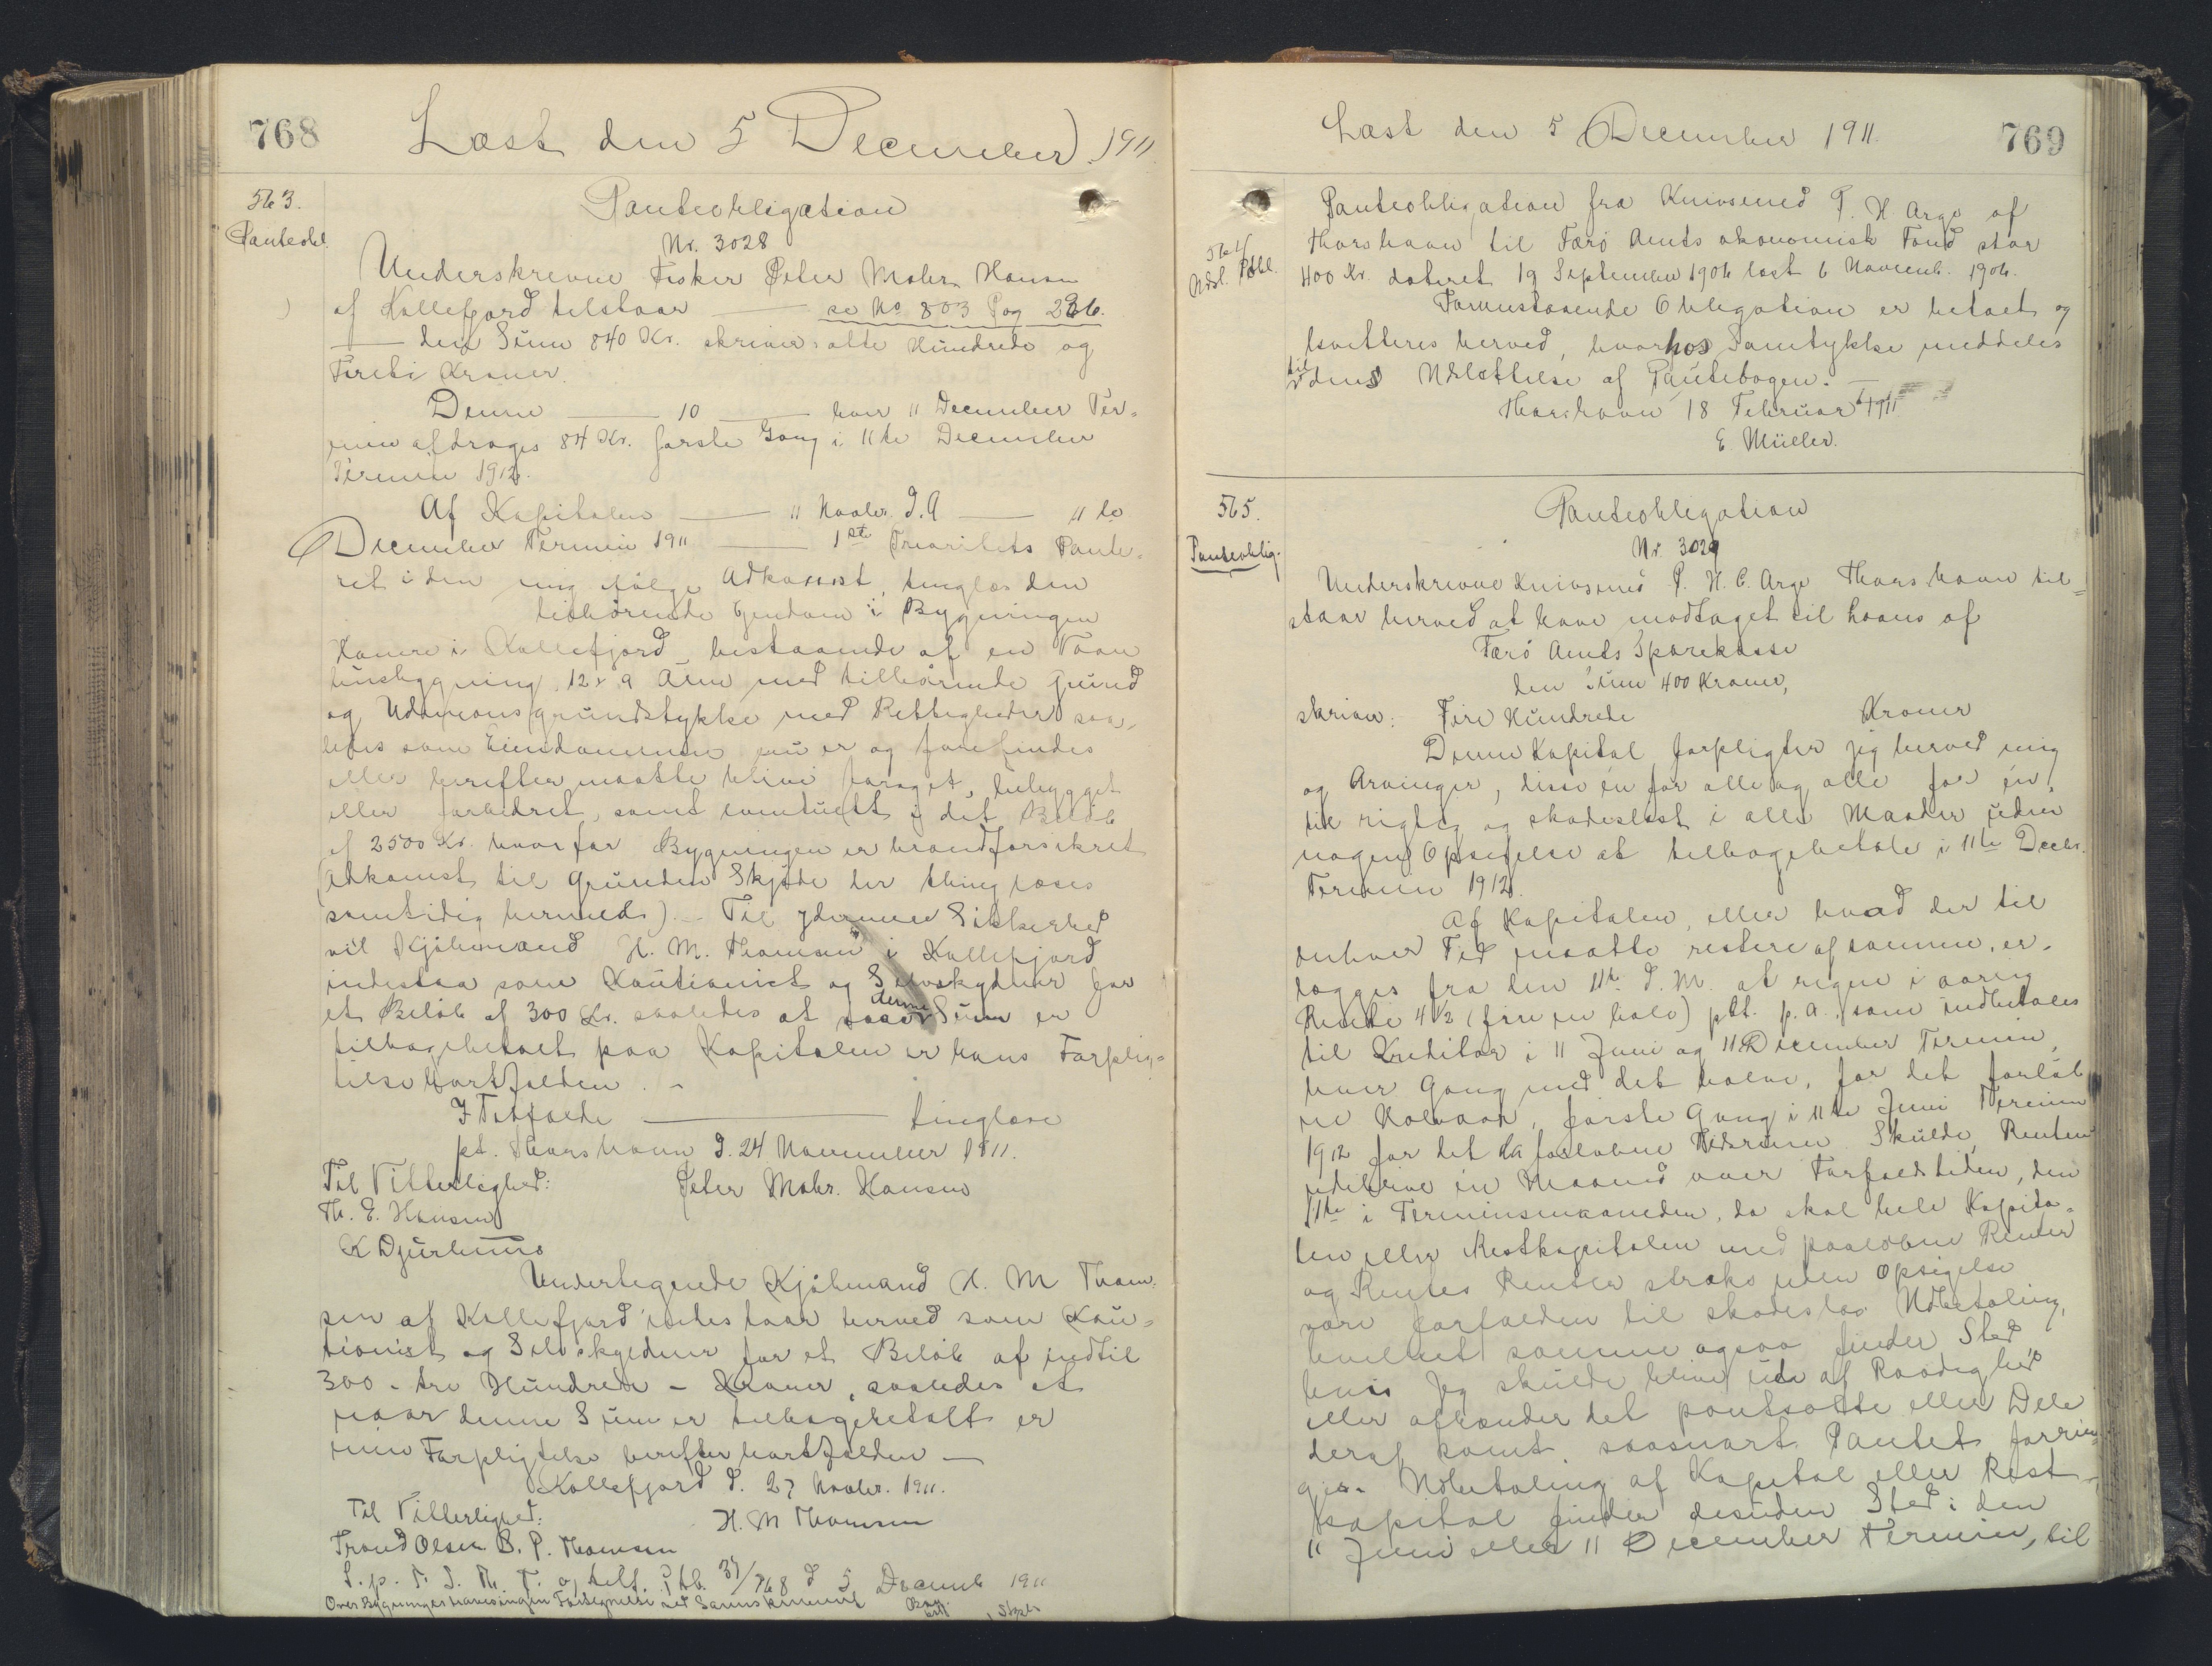 768
Læst den 5 December 1911
563.
Panteobl.
Panteobligation
Nr. 3028
Underskrevne Fisker Peter Mohr Hansen
af Kollefjord tilstaar — se No 803 Pag 226.
— den Sum 840 Kr. skriver otte Hundrede og
Fireti Kroner.
Denne — 10 — hver 11 December Ter=
min afdrages 84 Kr. første Gang i 11te December
Termin 1912.
Af Kapitalen — 11 Novbr. d.A — 11te
December Termin 1911 — 1ste Prioritets Pante=
ret i den mig ifølge Adkomst, tinglæs den
tilhørende Ejendom i Bygningen
i Kollefjord, bestaaende af en Vaan
husbygning 12 x 9 Alen med tilhørende Grund
og Udmarksgrundstykke med Rettigheder saa=
ledes som Eiendommen nu er og forefindes
eller herefter maatte blive forøget, bebygget
eller forbedret, samt eventuelt i det Beløb
af 2500 Kr. hvorfor Bygningen er brandforsikret
(Adkomst til Grunden Skjøde der thinglæses
samtidig hermed). — Til ydermere Sikkerhed
vil Kjøbmand H. M. Thomsen i Kollefjord
indestaa som Kautionist og Selvskyldner for
et Beløb af 300 Kr. saaledes at naar denne Sum er
tilbagebetalt paa Kapitalen er hans Forplig=
telse bortfalden. —
I Tilfælde — tinglæse
pt. Thorshavn d. 24 November 1911.
Til Vitterlighed: Peter Mohr. Hansen
Th. E. Hansen
K Djurhuus
Undertegnede Kjøbmand H. M Thom=
sen af Kollefjord indestaar herved som Kau=
tionist og Selvskyldner for et Beløb af indtil
300 - tre Hundrede - Kroner, saaledes at
naar denne Sum er tilbagebetalt er
min Forpligtelse herefter bortfalden —
Kollefjord d. 27 Novbr. 1911.
Til Vitterlighed: H. M Thomsen
Trond Olsen B. P. Thomsen
S. p. F. S. Th. T. og 37/768 d 5 Decemb 1911
769
Læst den 5 December 1911.
564
Udsl. Pobl.
Panteobligation fra Knivsmed P. H Argo af
Thorshavn til Færø Amts økonomisk Fond stor
400 Kr. dateret 19 September 1906 læst 6 Novemb. 1906.
Foranstaaende Obligation er betalt og
kvitteres herved, hvorhos Samtykke meddeles
til dens Udslettelse af Pantebogen. —
Thorshavn 18 Februar 1911
E. Müller.
565.
Panteoblig.
Panteobligation
Nr. 3029
Underskrevne Knivsmed P. H. C. Argo Thorshavn til=
staar herved at have modtaget til Laans af
Færø Amts Sparekasse
den Sum 400 Kroner,
skriver: Fire Hundrede Kroner
Denne Kapital forpligter jeg herved mig
og Arvinger, disse én for alle og alle for én,
til rigtig og skadesløst i alle Maader uden
nogen Opsigelse at tilbagebetale i 11te Decbr.
Termin 1912.
Af Kapitalen, eller hvad der til
enhver Tid maatte restere af samme, er=
lægges fra den 11te d. M. at regne i aarlig
Rente 4 1/2 (fire en halv) pCt. p.a., som indbetales
til Kreditor i 11 Juni og 11 December Termin,
hver Gang med det halve, for det forløb
ne Halvaar, første Gang i 11te Juni Termin
1912 for det da forløbne Tidsrum. Skulde Renten
udeblive én Maaned over Forfaldstiden, den
11te i Terminsmaaneden, da skal hele Kapita=
len eller Restkapitalen med paaløbne Renter
og Rentes Renter straks uden Opsigelse
være forfalden til skadesløs Udbetaling,
hvilket samme ogsaa finder Sted
hvis Jeg skulde blive ude af Raadighed
eller afhænder det pantsatte eller Dele
deraf samt saasnart Pantet forrin=
ges. Udbetaling af Kapital eller Rest=
kapital finder desuden Sted i den
11 Juni eller 11 December Termin, til